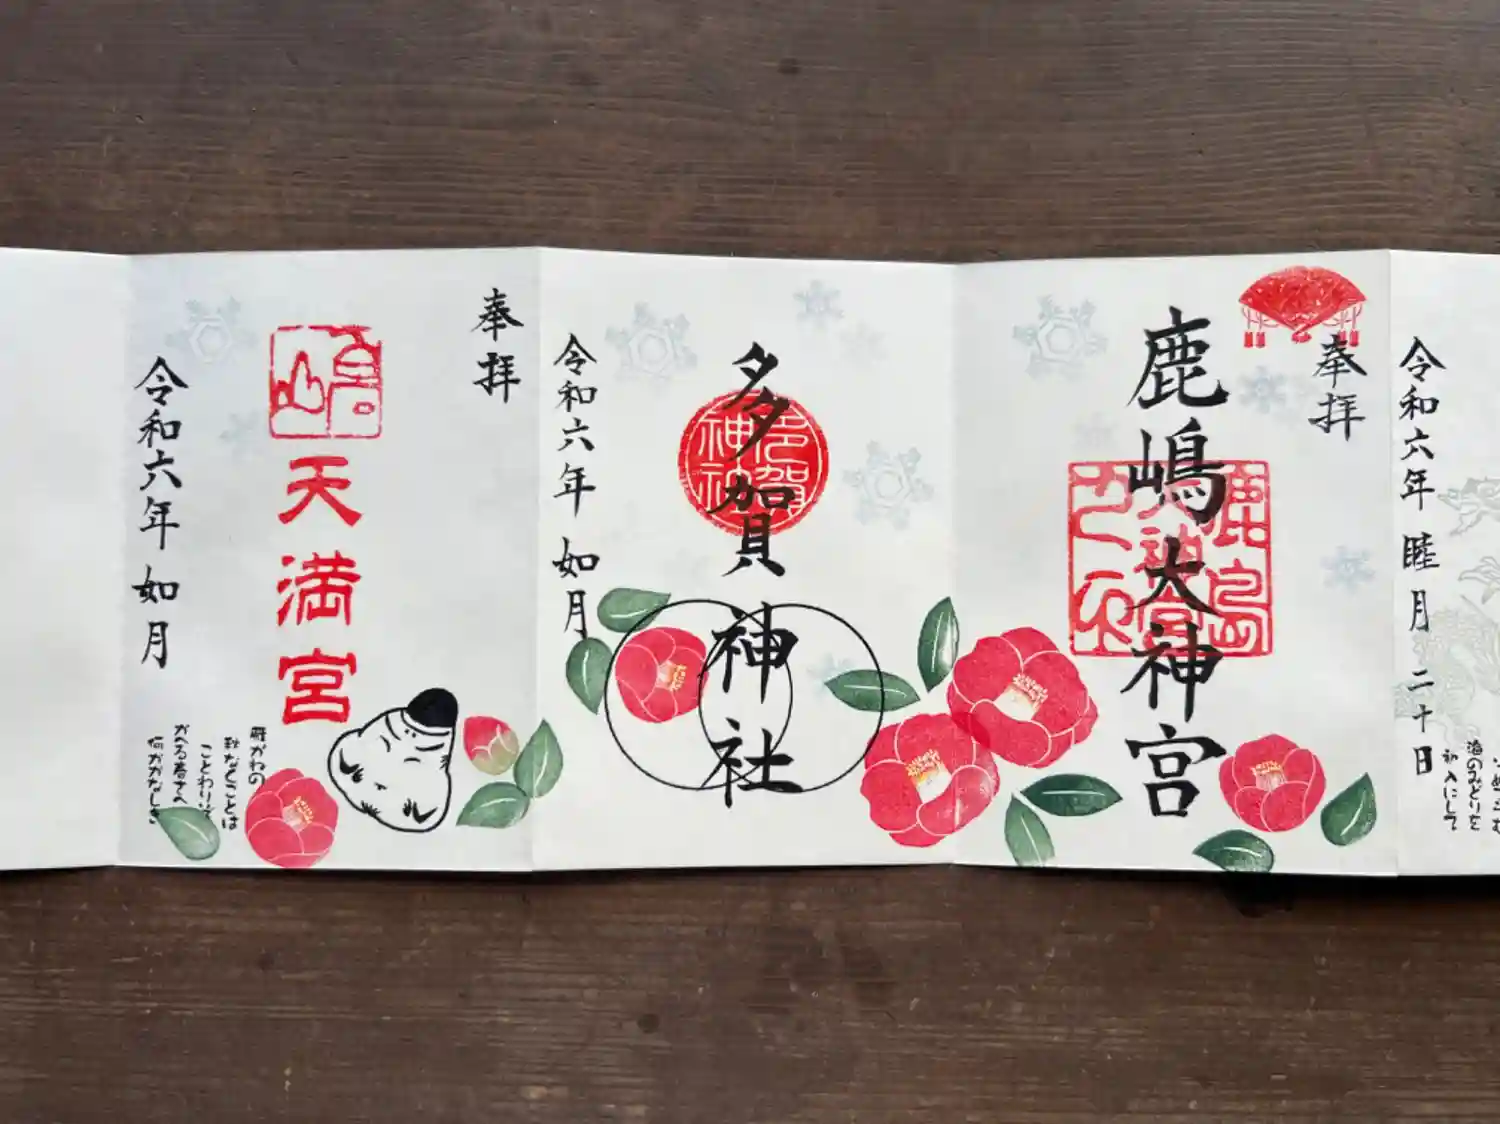 令和六年 睦月 二十日
海のみどりを
奉拝
鹿嶋大神宮
鹿島
神宮
多賀神社
多賀
神社
令和六年 如月
奉拝
嶋宮
天満宮
令和六年 如月
ことわりぞ
秋なくことは
かへる春さへ
何かかなしき